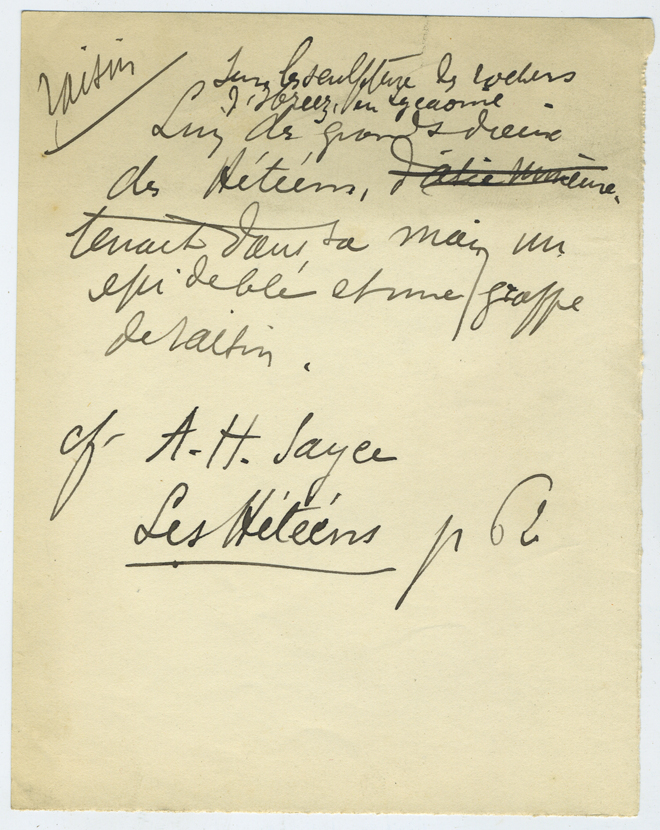 raisin
Sur les sculpture des rochers
d'Ibreez, en Lycaonie
L'un des grands dieux
des Hétéens, d'Asie Mineure
tenant dans sa main un
epi de blé et une grappe
de raisin.
cf A.-H. Sayce
Les Hétéens p 62